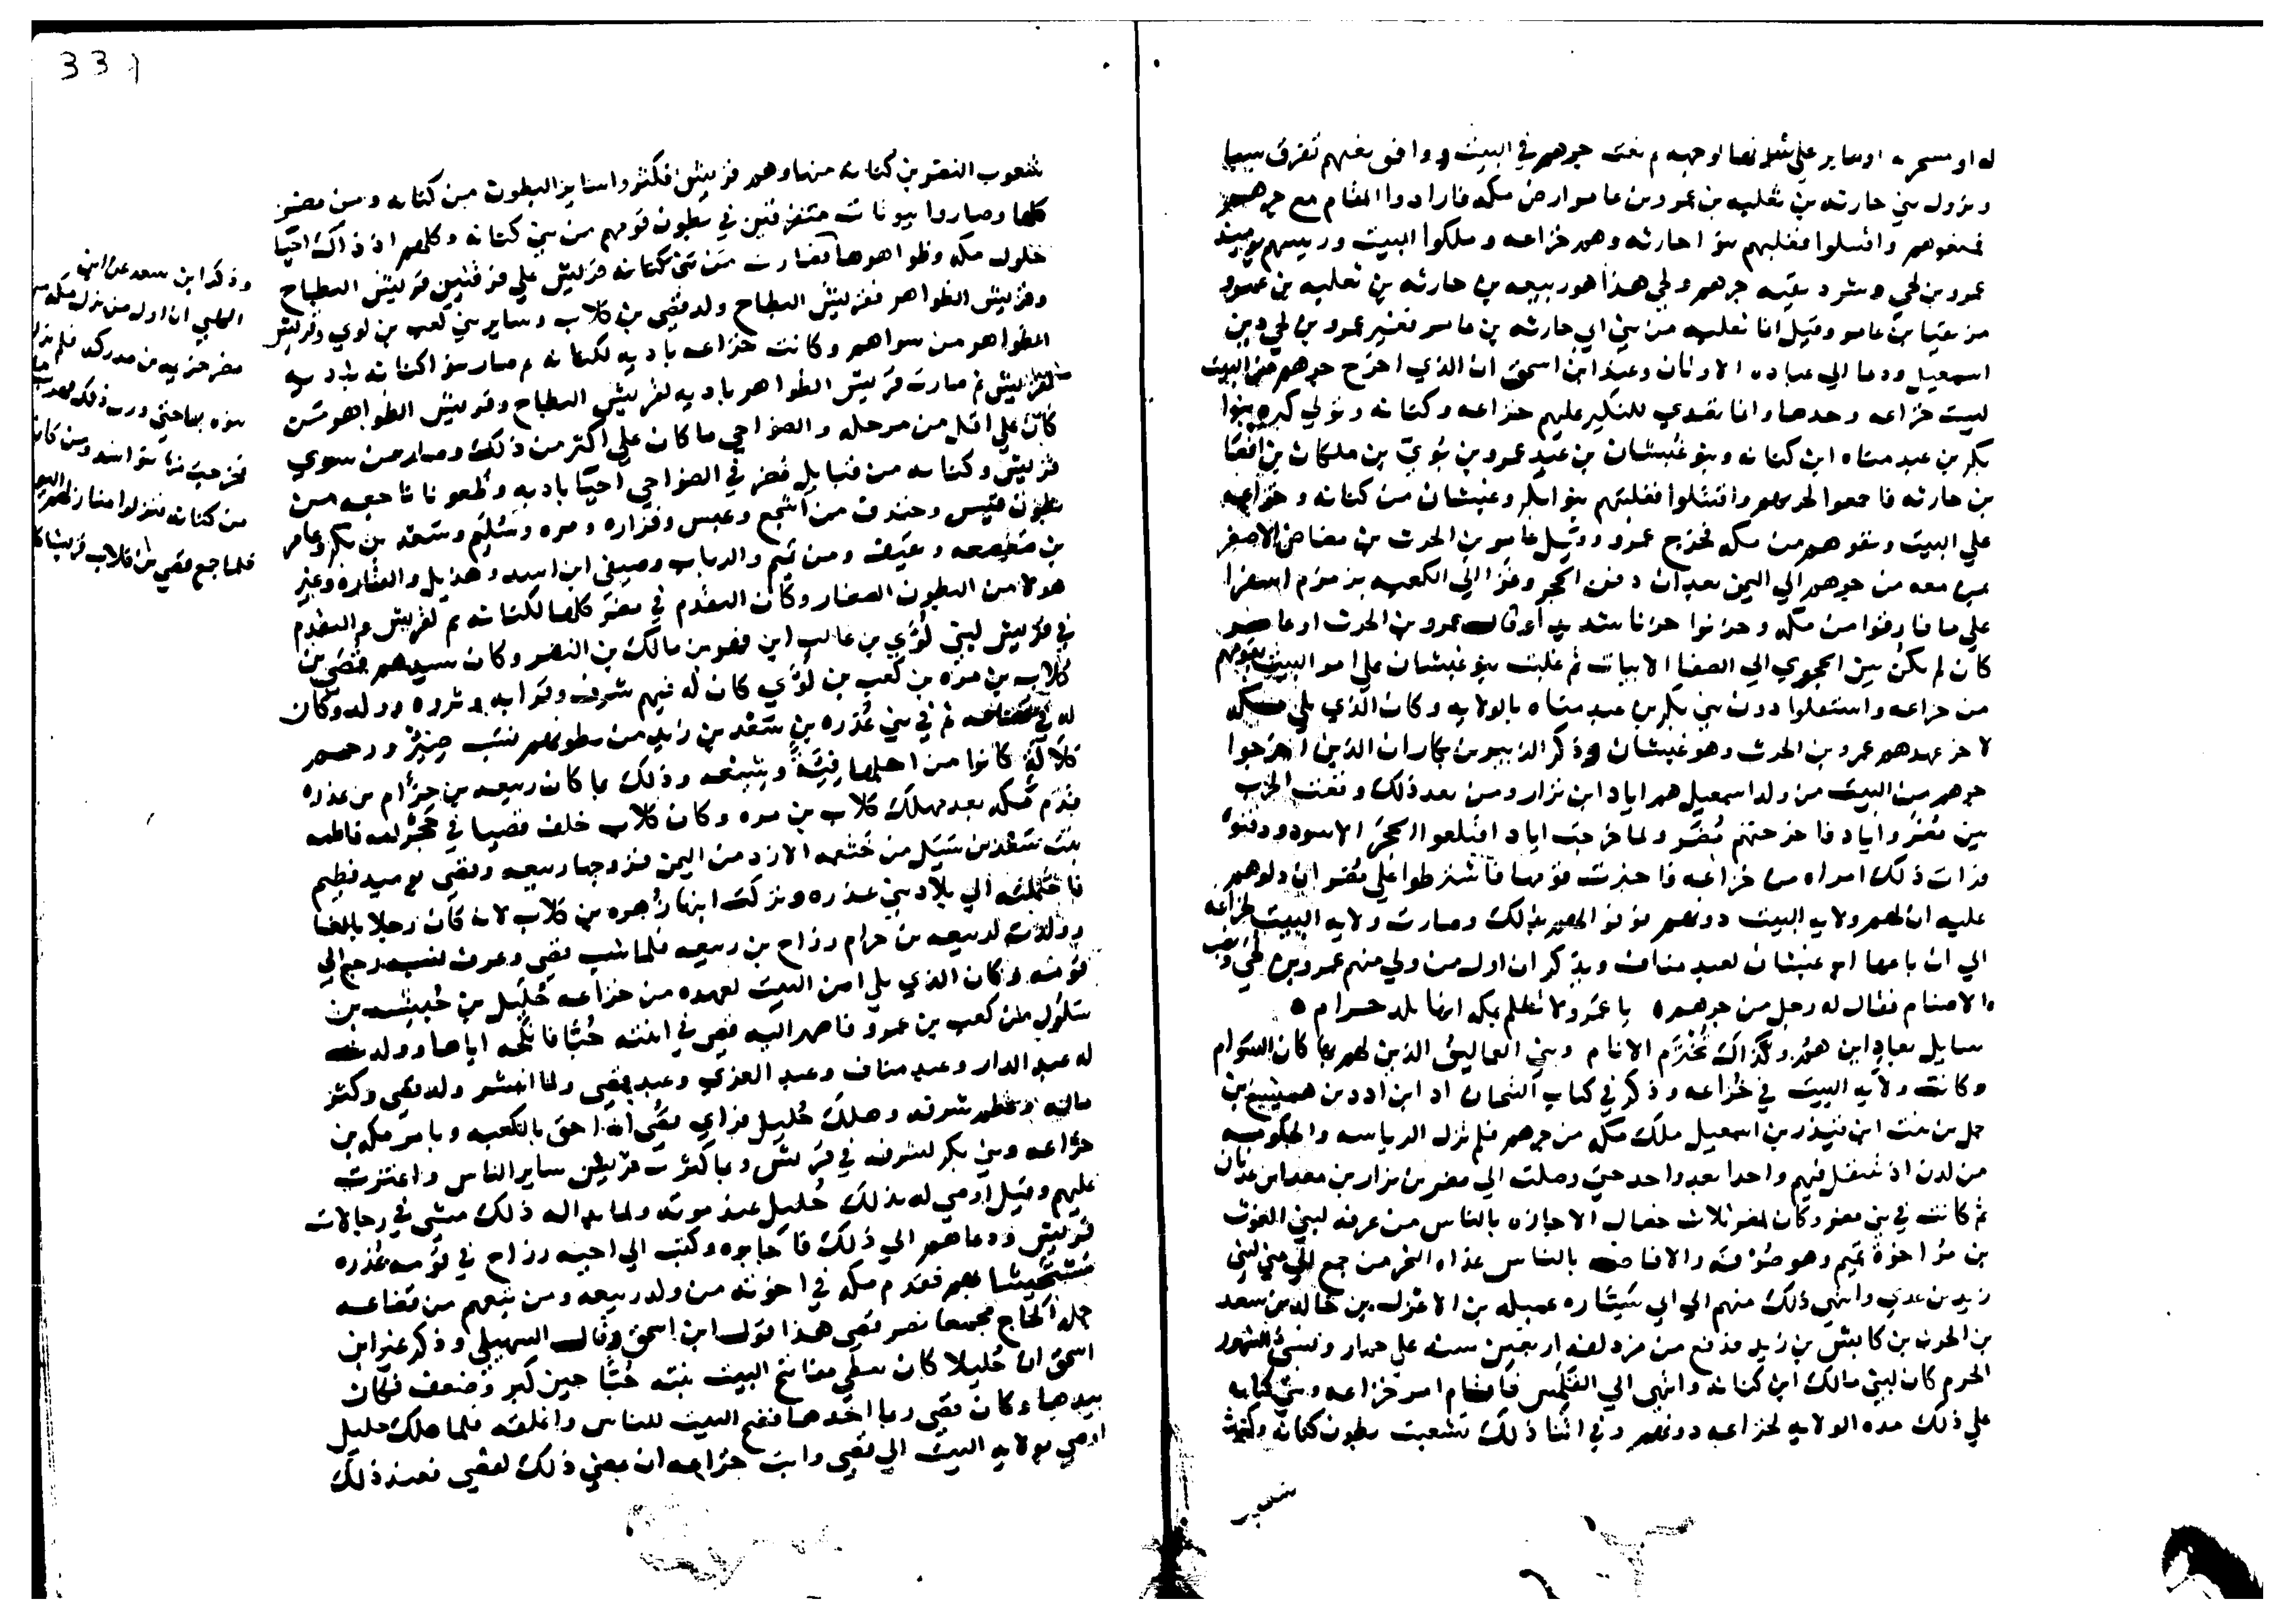 ثم بغت جرهم في البيت ووافق بغيهم تفرق سبا
ونزول بني حارثه بن ثعلبه بن عمرو بن عامر ارض مكه فارادوا المقام مع جرهم
فمنعوهم واقتتلوا فغلبهم بنوا حارثه وهم خزاعه وملكوا البيت ورييسهم يوميذ
عمرو بن لحي وشرد بقيه جرهم ولحي هذا هو ربيعه بن حارثه بن ثعلبه بن عمرو
من بقيا بن عامر وقيل انما ثعلبه من بني ابي حارثه بن عامر فغير عمرو بن لحي دين
اسمعيل ودعا الي عباده الاوثان وعند ابن اسحق ان الذي اخرج جرهم من البيت
ليست خزاعه وحدها وانما تصدي للنكير عليهم خزاعه وكنانه وتولي كبره بنوا
بكر بن عبد مناه ابن كنانه وبنو غبشان بن عبد عمرو بن بوي بن ملكان بن افصا
بن حارثه فاجمعوا لحربهم واقتتلوا فغلبهم بنوا بكر وغبشان من كنانه وخزاعه
علي البيت ونفوهم من مكه فخرج عمرو وقيل عامر بن الحرث بن مضاض الاصغر
بمن معه من جرهم الي اليمن بعد ان دفن الحجر وغزالي الكعبه بزمزم اسفا
علي ما فارقوا من مكه وحزنوا حزنا شديدا وقال عمرو بن الحرث او عامر
كان لم يكن بين الحجوي الي الصفا الابيات ثم غلبت بنو غبشان علي امر البيت بقومهم
من خزاعه واستقلوا دون بني بكر بن عبد مناه بالولايه وكان الذي يلي
لاخر عهدهم عمرو بن الحرث وهو غبشان وذكر الزبير بن بكار ان الذين اخرجوا
جرهم من البيت من ولد اسمعيل هم اياد ابن نزار ومن بعد ذلك وقعت الحرب
بين مضر واياد فاخرجتهم مضر ولما خرجت اياد اقتلعوا الحجر الاسود ودفنوه
فرات ذلك امراه من خزاعه فاخبرت قومها فاشترطوا علي مضر ان دلوهم
عليه ان لهم ولايه البيت دونهم فوفوا لهم بذلك وصارت ولايه البيت لخزاعه
الي ان باعها ابو غبشان لعبد مناف ويذكر ان اول من ولي منهم عمرو بن لحي ونصب
الاصنام فقال له رجل من جرهم ه يا عمرو لا تظلم بمكه انها بلد حرام ه
سايل بعاد اين هم وكذاك تحترم الانام وبني العماليق الذين لهم بها كان السوام
وكانت ولايه البيت في خزاعه وذكر في كتاب التيجان اد ابن ادد بن هميسع بن
حمل بن نبت ابن قيذر بن اسمعيل ملك مكه من جرهم فلم تزل الرياسه والحكومه
من لدن اد تنتقل فيهم واحدا بعد واحد حتي وصلت الي مضر بن نزار بن معد ابن عدنان
ثم كانت في بني مضر وكان لمضر ثلاث خصال الاجازه بالناس من عرفه لبني الغوث
بن مر اخوة تميم وهو صوفه والافاضه بالناس غداه النحر من جمع الي مني لبني
زيد بن عدي وانتهي ذلك منهم الي ابي سيّاره عميله بن الاعزل بن خالد بن سعد
بن الحرث بن كابش بن زيد فدفع من مزدلفه اربعين سنه علي حمار ونسي الشهور
الحرم كان لبني مالك ابن كنانه وانتهي الي القلمّس فاقام امر خزاعه وبني كنانه
علي ذلك مده الولايه لخزاعه دونهم وفي اثنا ذلك تشعبت بطون كنانه وكثرت
شعوب
331
شعوب النضر بن كنانه منها وهم قريش فكثروا ساير البطون من كنانه ومن مضر
كلها وصاروا بيوتات متفرقين في بطون قومهم من بني كنانه وكلهم اذ ذاك احيا
حلول مكه وظواهرها فصارت من بني كنانه قريش علي فرقتين قريش البطاح
وقريش الظواهر فقريش البطاح ولد قصي بن كلاب وساير بني كعب بن لوي وقريش
الظواهر من سواهم وكانت خزاعه باديه لكنانه ثم صار بنوا كنانه باديه
لقريش ثم صارت قريش الظواهر باديه لقريش البطاح وقريش الظواهر من
كان علي اقل من مرحله والضواحي ما كان علي اكثر من ذلك وصار من سوي
قريش وكنانه من قبايل مضر في الضواحي احيا باديه وظعونا ناجعه من
بطون قيس وخندف من اشجع وعبس وفزاره ومره وسليم وسعد بن بكر وعامر
بن صعصعه وثقيف ومن تيم والرباب وصيفي ابن اسد وهذيل والقاره وغير
هولا من البطون الصغار وكان التقدم في مضر كلها لكنانه ثم لقريش والتقدم
في قريش لبني لوّي بن غالب ابن فهر بن مالك بن النضر وكان سيدهم قصي بن
كلاب بن مره بن كعب بن لوّي كان له فيهم شرف وقرابه وثروه وولد وكان
له في قضاعه ثم في بني عذره بن سعد بن زيد من بطونهم نسب صهر ورحم
كلالة كانوا من اجلها فيئة وشيعه وذلك بما كان ربيعه بن حرام بن عذره
قدم مكه بعد مهلك كلاب بن مره وكان كلاب خلف قصيا في حجر امه فاطمه
بنت سعد بن سيل من خثعمه الازد من اليمن فتزوجها ربيعه وقصي يوميذ فطيم
فاحتملته الي بلاد بني عذره وتركت ابنها زهره بن كلاب لانه كان رجلا بالغا
وولدت لربيعه بن حرام رزاح بن ربيعه فلما شب قصي وعرف نسبه رجع الي
قومه وكان الذي يلي امر البيت لعهده من خزاعه حُليل بن حُبيشه بن
سلول بن كعب بن عمرو فاصهر اليه قصي في ابنته حُبّا فانكحه اياها وولدت
له عبد الدار وعبد مناف وعبد العزي وعبد قصي ولما انتشر ولد قصي وكثر
ماله وعظم شرفه وهلك حُليل فراي قصي انه احق بالكعبه وبامر مكه من
خزاعه وبني بكر لشرفه في قريش وبما كثرت قريش ساير الناس واعتزت
عليهم وقيل اوصي له بذلك حُليل عند موته ولما بدا له ذلك مشي في رجالات
قريش ودعاهم الي ذلك فاجابوه وكتب الي اخيه رزاح في قومه عذره
مستجيشا بهم فقدم مكه في اخوته من ولد ربيعه ومن تبعهم من قضاعه
جمله الحاج مجمعا نصر قصي هذا قول ابن اسحق وقال السهيلي وذكر غير ابن
اسحق ان حُليلا كان يعطي مفاتيح البيت بنته حُبّا حين كبر وضعف فكان
بيدها وكان قصي ربما اخذها ففتح البيت للناس واغلقه فلما هلك حليل
اوصي بولايه البيت الي قصي وابت خزاعه ان يمضي ذلك لقصي فعند ذلك
وذكر ابن سعد عن ابن
الكلبي ان اول من نزل مكه من
مضر خزيمه بن مدركه
فخرجت
من كنانه فنزلوا منازلهم اليوم
فلما جمع قصي بن كلاب قريشا